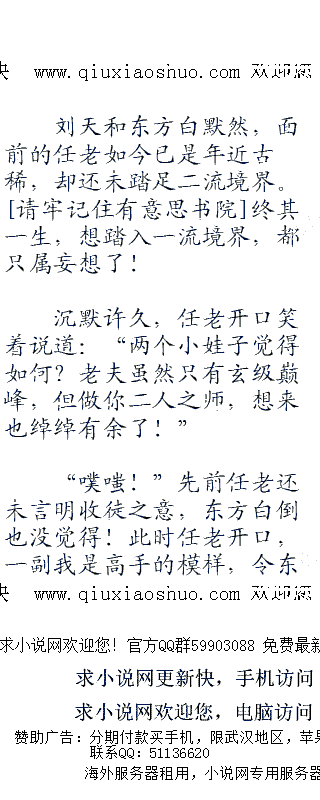 快 www.qiuxiaoshuo.com 欢迎您
刘天和东方白默然，面
前的任老如今已是年近古
稀，却还未踏足二流境界。
[请牢记住有意思书院]终其
一生，想踏入一流境界，都
只属妄想了！
沉默许久，任老开口笑
着说道：“两个小娃子觉得
如何？老夫虽然只有玄级巅
峰，但做你二人之师，想来
也绰绰有余了！”
“噗嗤！”先前任老还
未言明收徒之意，东方白倒
也没觉得！此时任老开口，
一副我是高手的模样，令东
快 www.qiuxiaoshuo.com 欢迎您
求小说网欢迎您！官方QQ群59903088 免费最新
求小说网更新快，手机访问
求小说网欢迎您，电脑访问
赞助广告：分期付款买手机，限武汉地区，苹果
联系QQ：51136620
海外服务器租用，小说网专用服务器